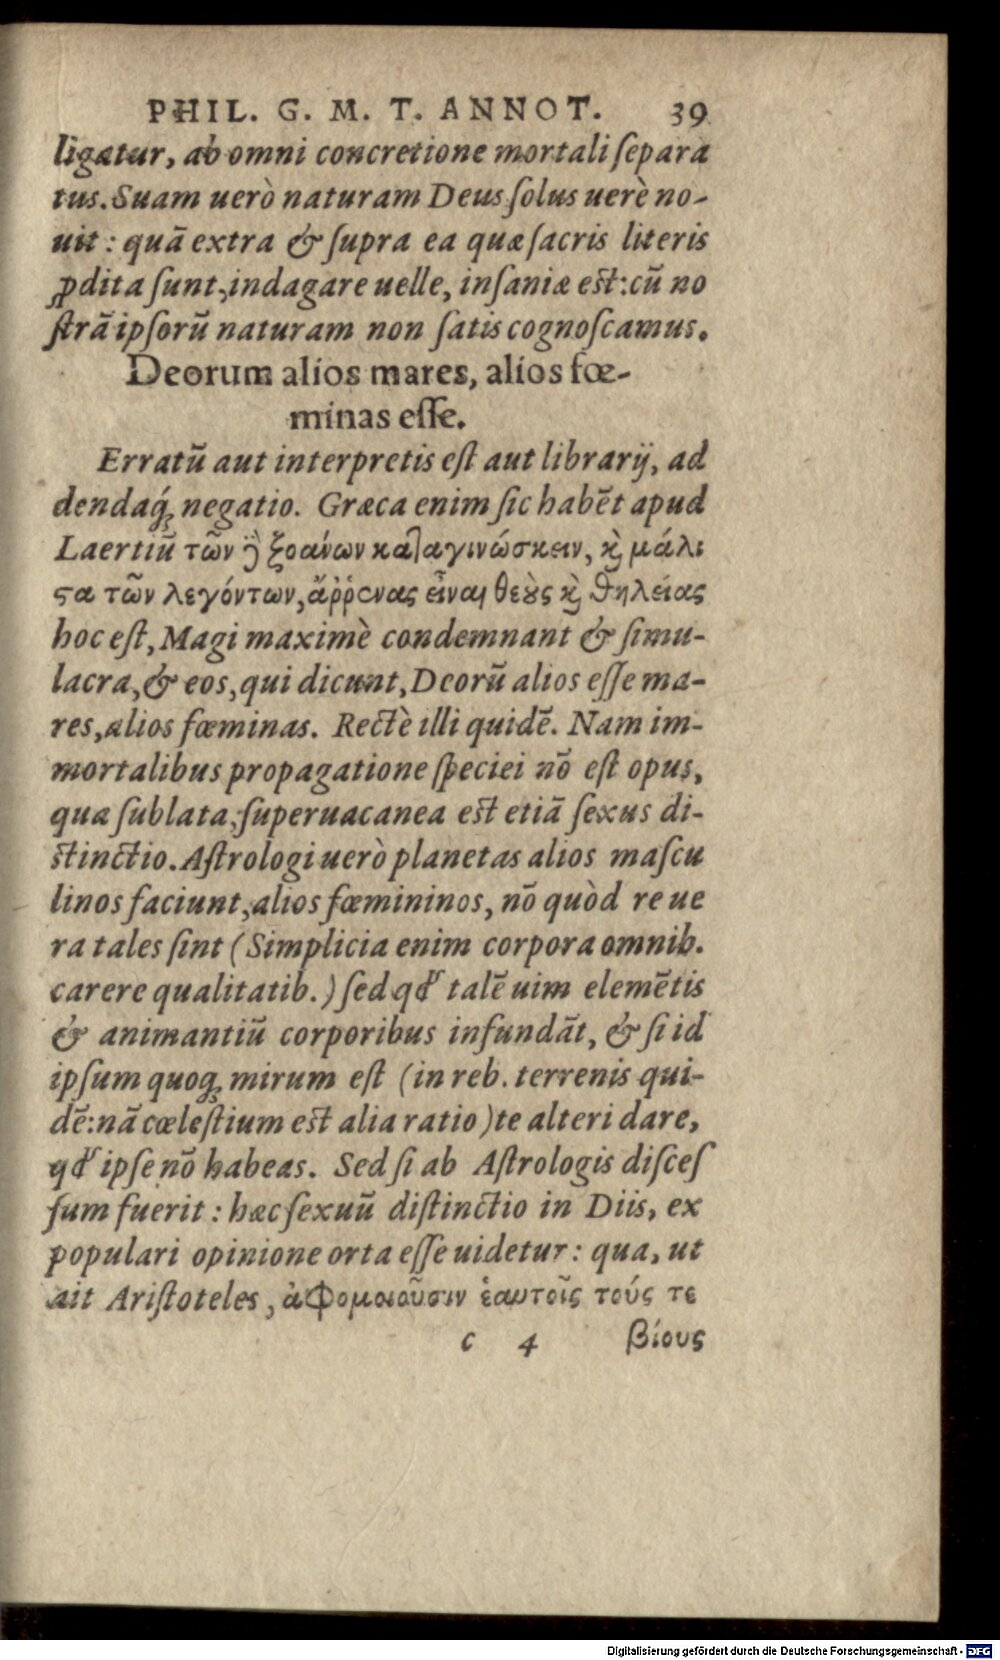 PHIL. G. M. T. ANNOT. 39
ligatur, ab omni concretione mortali ſepara
tus. Suam uerò naturam Deus ſolus uerè no-
uit: quā extra & ſupra ea quæ ſacris literis
ꝓdita ſunt, indagare uelle, inſaniæ est: cū no
ſtrā ipſorū naturam non ſatis cognoſcamus.
Deorum alios mares, alios fœ-
minas eſſe.
Erratū aut interpretis eſt aut librarij, ad
dendaq́ꝫ negatio. Græca enim ſic habēt apud
Laertiū τῶν ἢ ξοάνων καταγινώσκειν, ϗ μάλι
ϛα τῶν λεγόντων, ἄῤῥενας εἶναι θεȣ̀ς ϗ θηλείας
hoc eſt, Magi maximè condemnant & ſimu-
lacra, & eos, qui dicunt, Deorū alios eſſe ma-
res, alios fœminas. Rectè illi quidē. Nam im-
mortalibus propagatione ſpeciei nō eſt opus,
qua ſublata, ſuperuacanea est etiā ſexus di-
stinctio. Aſtrologi uerò planetas alios maſcu
linos faciunt, alios fœmininos, nō quòd re ue
ra tales ſint (Simplicia enim corpora omnib.
carere qualitatib.) ſed qd' talē uim elemētis
& animantiū corporibus infundāt, & ſi id
ipſum quoqꝫ mirum eſt (in reb. terrenis qui-
dē: nā cœleſtium est alia ratio) te alteri dare,
qd' ipſe nō habeas. Sed ſi ab Aſtrologis diſceſ
ſum fuerit: hæc ſexuū diſtinctio in Diis, ex
populari opinione orta eſſe uidetur: qua, ut
ait Ariſtoteles, ἀφομοιοῦσιν ἑαυτοῖς τούς τε
c 4 βίους
Digitalisierung gefördert durch die Deutsche Forschungsgemeinschaft - DFG